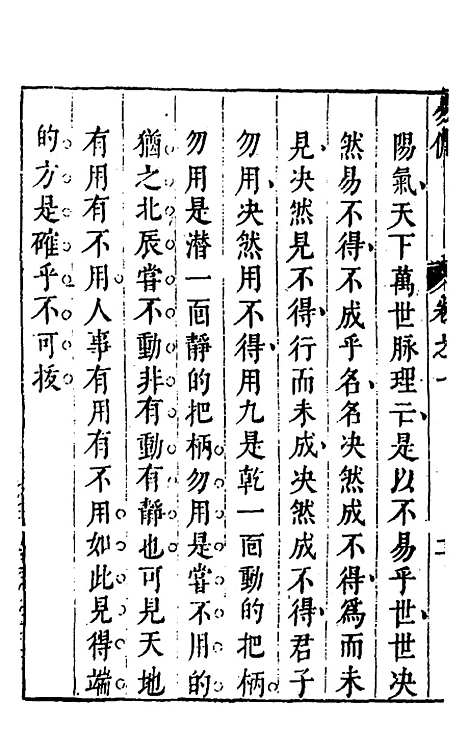 陽氣天下萬世脉理云是以不易乎世世决
然易不得不成乎名名决然成不得爲而未
見决然見不得行而未成决然成不得君子
勿用决然用不得用九是乾一面動的把柄
勿用是潜一面靜的把柄勿用是嘗不用的
猶之北辰嘗不動非有動有靜也可見天地
有用有不用人事有用有不用如此見得端
的方是確乎不可拔
卷之一
二